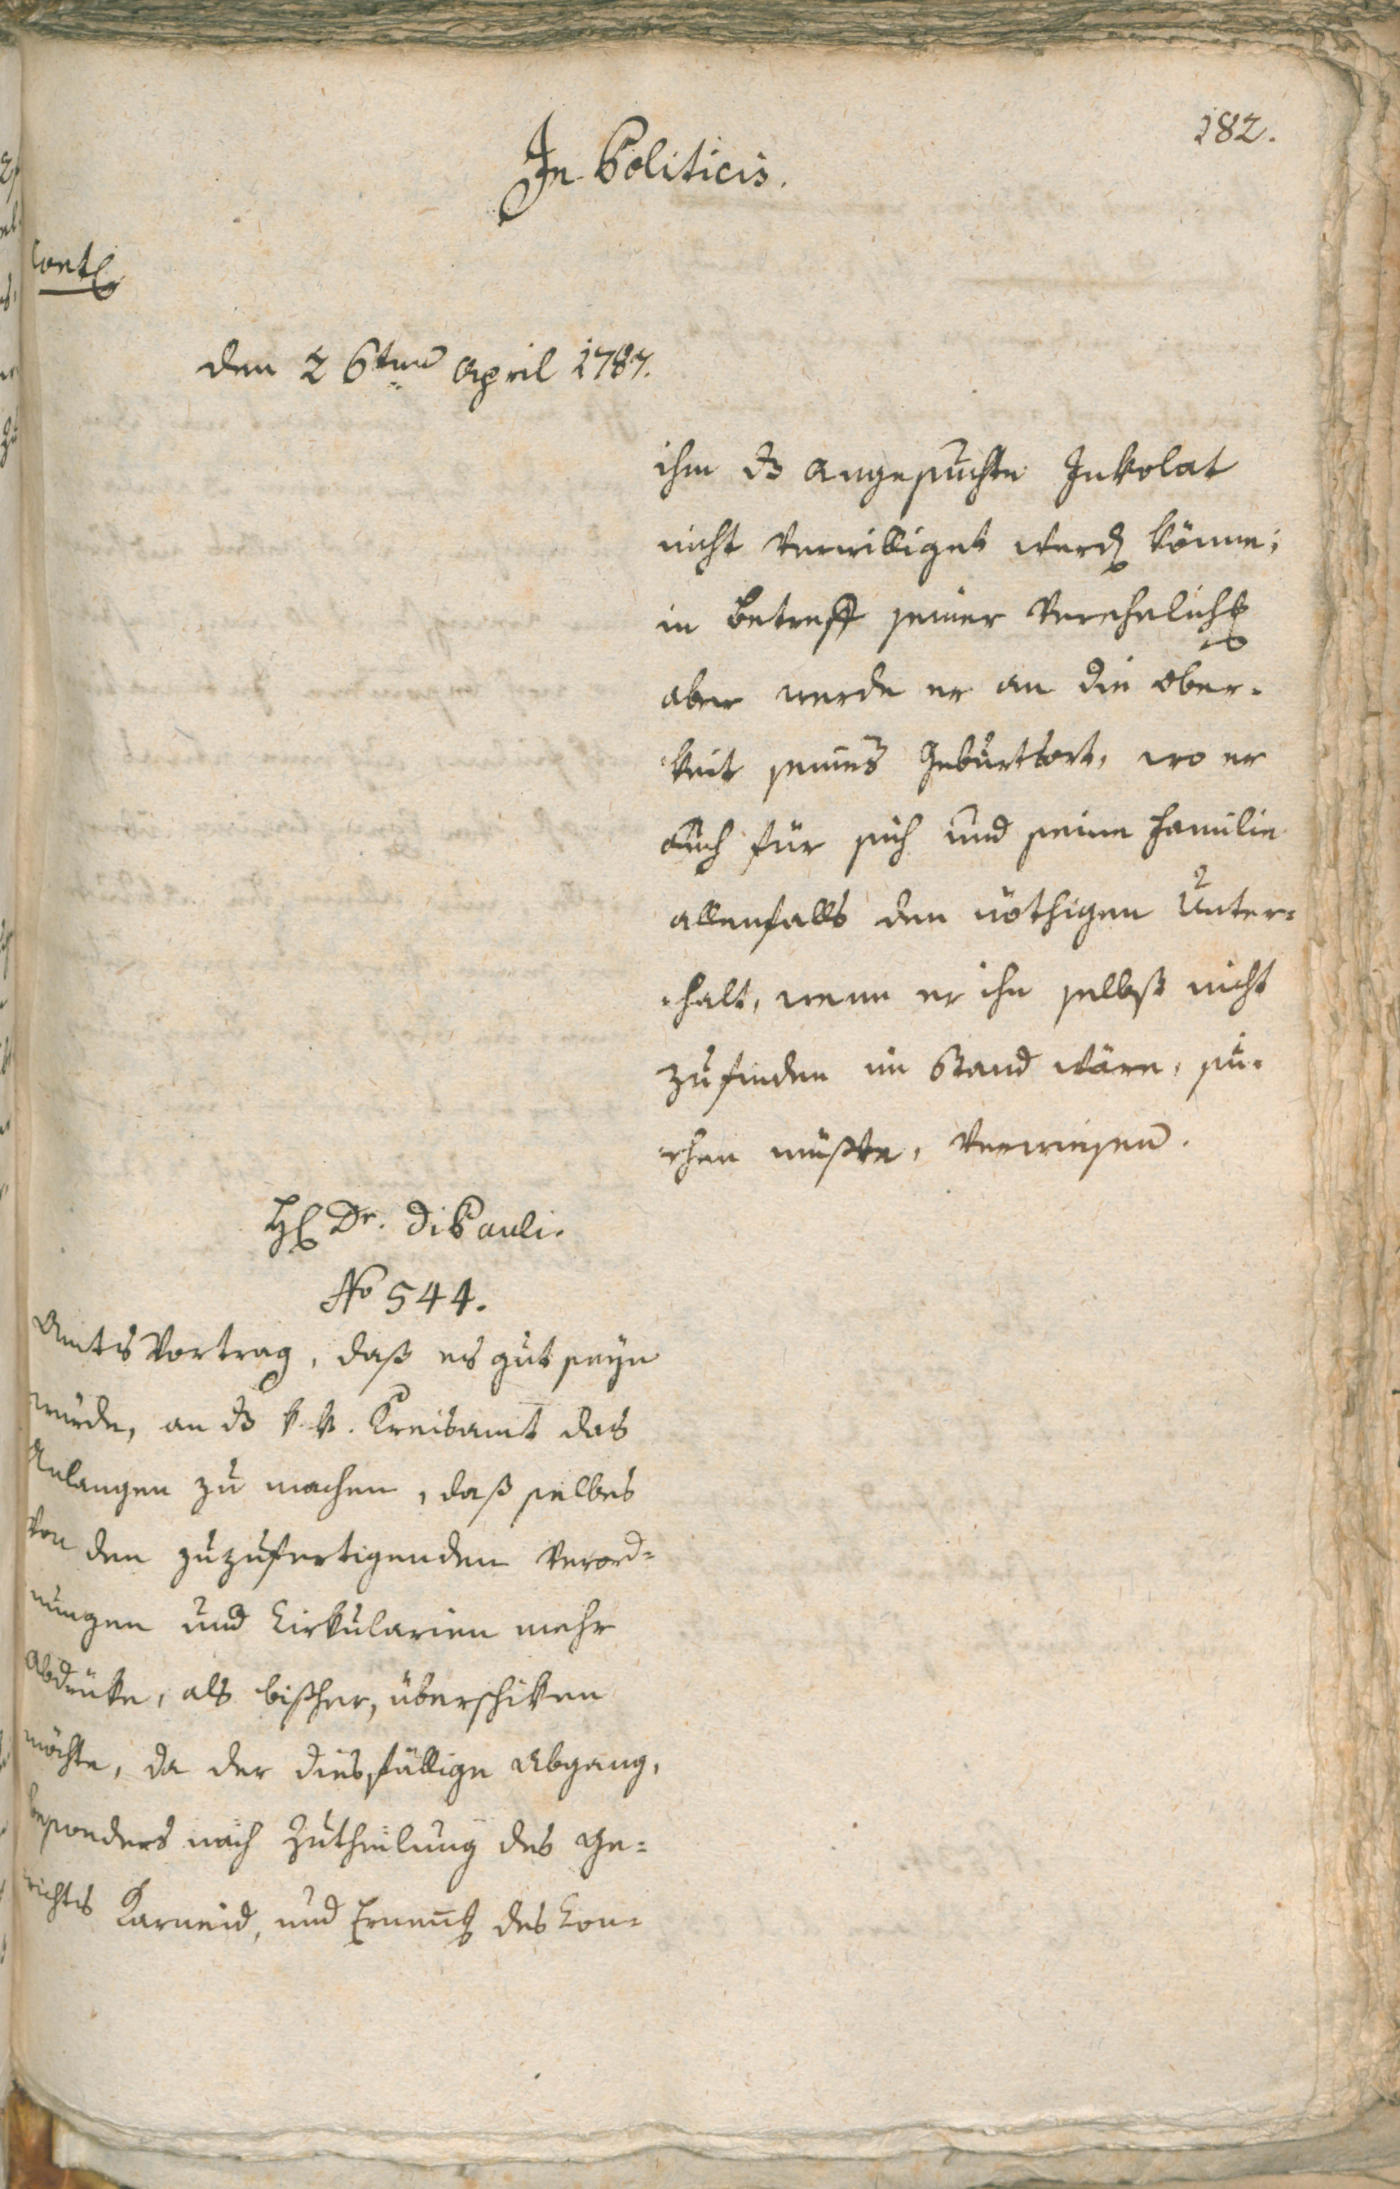 182.
In Politicis.
Cont
den 26ten April 1787.
ihm das angesuchte Inkolat
nicht verwilliget werden könne;
in betreff seiner Verehelichung
aber werde er an die Ober-
keit seines Geburtsort, wo er
auch für sich und seine Familie
allenfalls den nöthigen Unter-
-halt, wenn er ihn selbst nicht
zufinden im Stand wäre, su-
chen müßte, verwiesen.
H Dr. DiPauli.
No 544.
AmtsVortrag, daß es gut seyn
würde, an das k. k. Kreisamt das
Anlangen zu machen, daß selbes
von den zuzufertigenden Verord-
nungen und Cirkularien mehr
Abdrüke, als bißher, überschiken
möchte, da der diesfällige Abgang,
besonders nach Zutheilung des Ge-
richts Karneid, und Ernenung des Con-